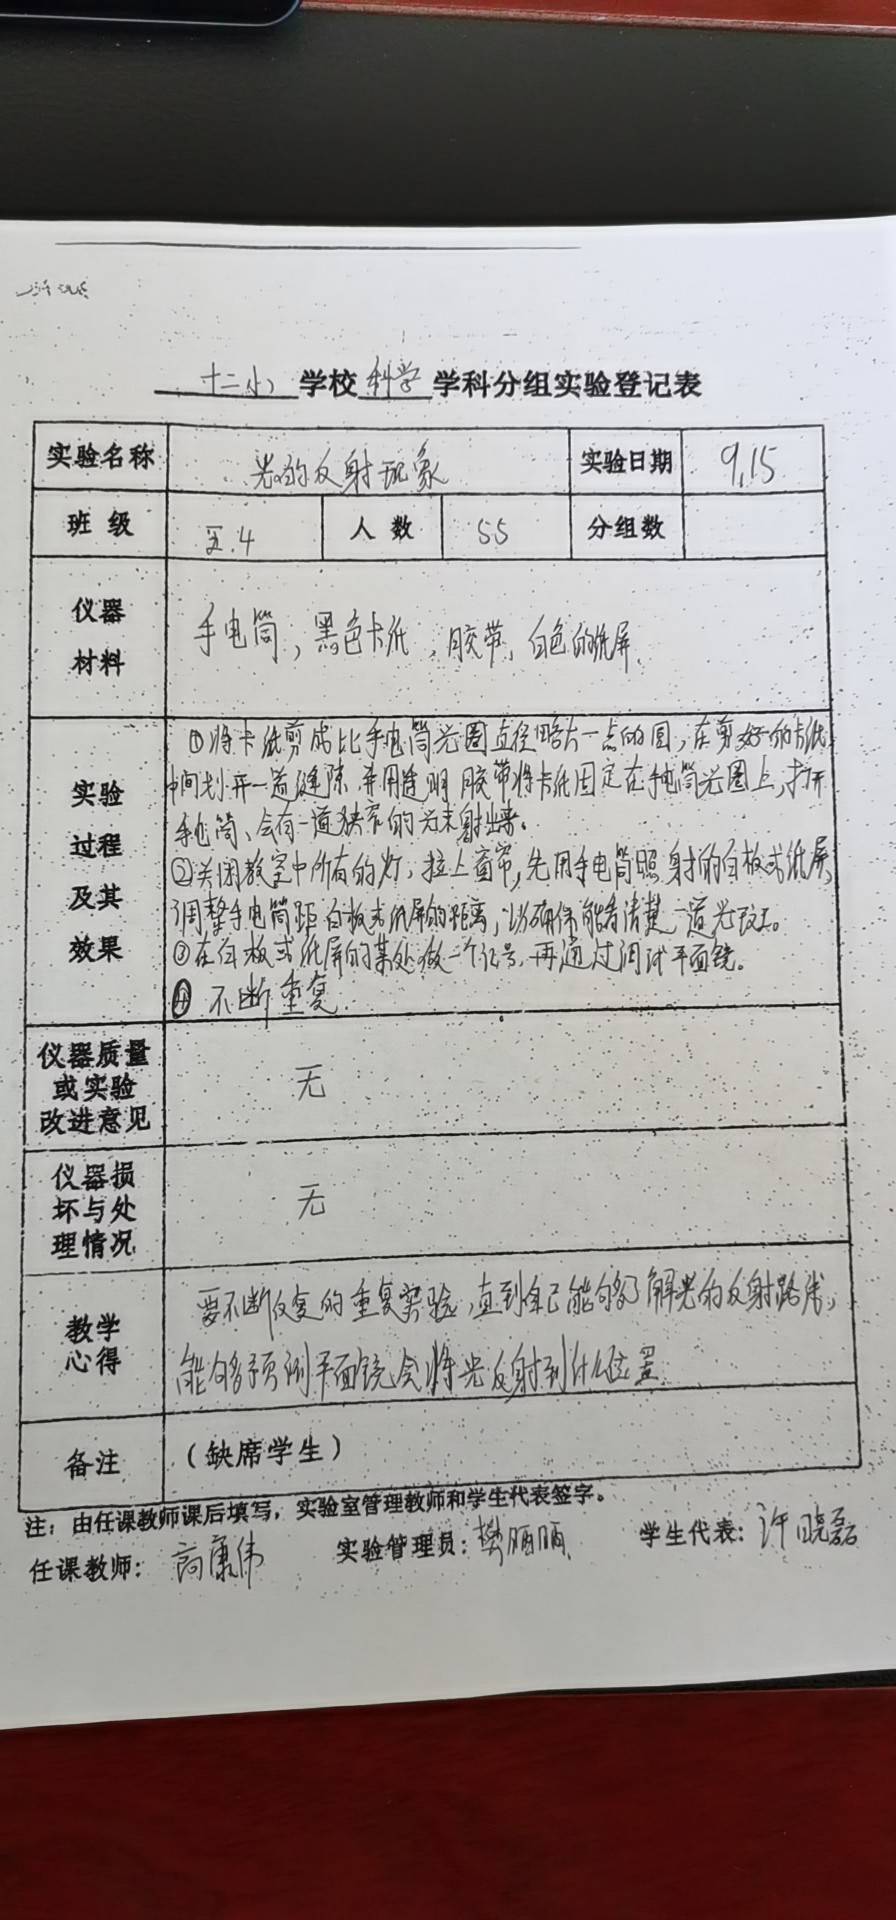 十二小 学校 科学 学科分组实验登记表
实验名称 光的反射现象 实验日期 9.15
班级 五.4 人数 55 分组数
仪器
材料
手电筒，黑色卡纸，胶带，白色的纸屏.
实验
过程
及其
效果
①将卡纸剪成比手电筒光圈直径略大一点的圆，在剪好的卡纸
中间划开一道缝隙，并用透明胶带将卡纸固定在手电筒光圈上，打开
手电筒、会有一道狭窄的光束射出来。
②关闭教室中所有的灯，拉上窗帘，先用手电筒照射的白板或纸屏，
调整手电筒距白板或纸屏的距离，以确保能看清楚一道光斑。
③在白板或纸屏的某处做一个记号，再通过调试平面镜。
④不断重复.
仪器质量
或实验
改进意见
无
仪器损
坏与处
理情况
无
教学
心得
要不断反复的重复实验，直到自己能够了解光的反射路线，
能够预测平面镜会将光反射到什么位置.
备注 （缺席学生）
注：由任课教师课后填写，实验室管理教师和学生代表签字。
任课教师：高康伟 实验管理员：樊丽丽 学生代表：许晓磊